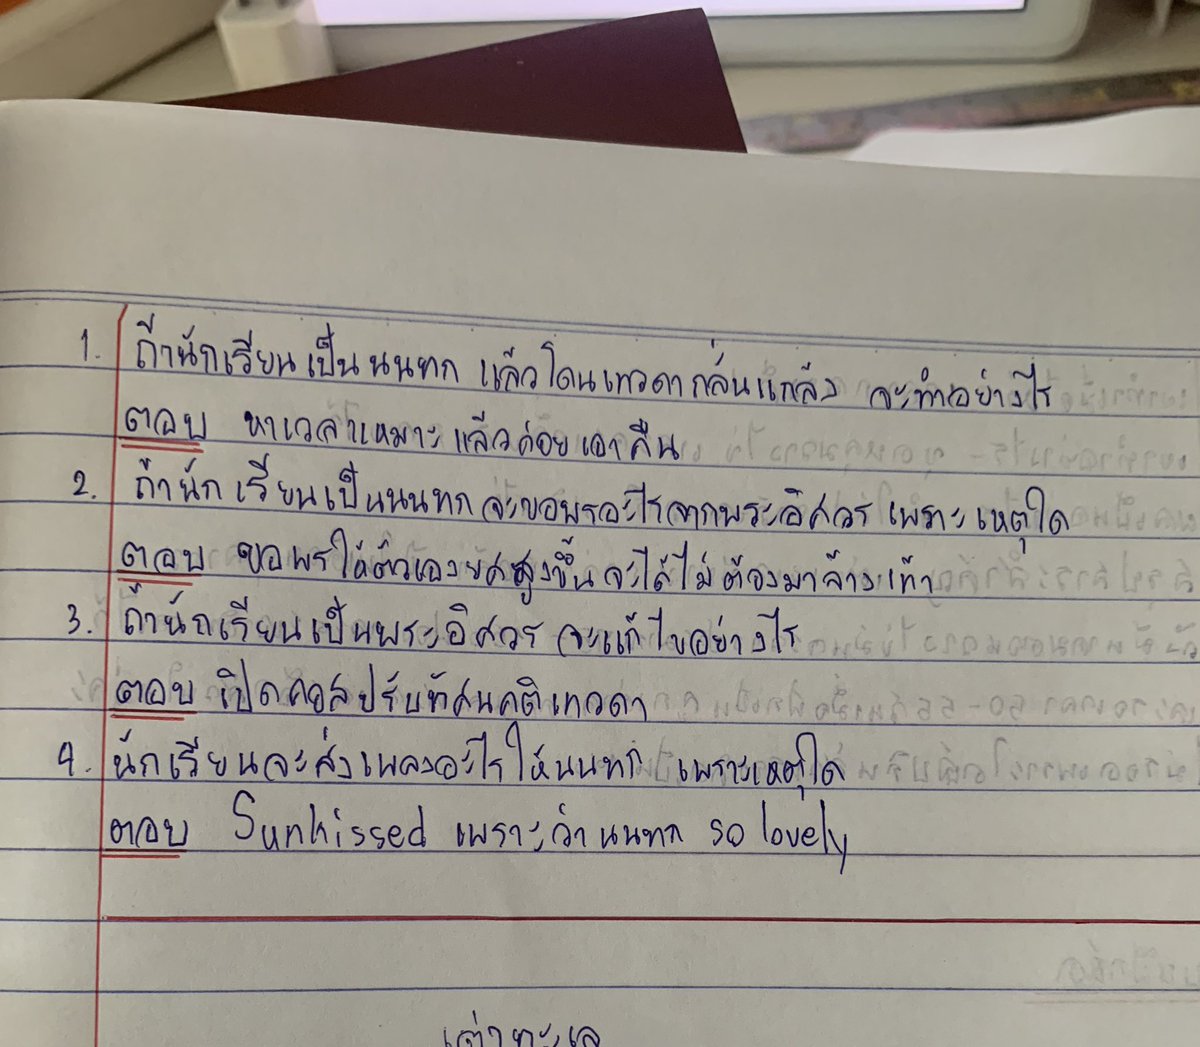 1. ถ้านักเรียนเป็นนนทก แล้วโดนเทวดากลั่นแกล้ง จะทำอย่างไร
ตอบ หาเวลาเหมาะแล้วค่อยเอาคืน
2. ถ้านักเรียนเป็นนนทกจะขอพรอะไรจากพระอิศวร เพราะเหตุใด
ตอบ ขอพรให้ตัวเองยศสูงขึ้นจะได้ไม่ต้องมาล้างเท้า
3. ถ้านักเรียนเป็นพระอิศวร จะแก้ไขอย่างไร
ตอบ เปิดคอสปรับทัศนคติเทวดา
4. นักเรียนจะส่งเพลงอะไรให้นนทก เพราะเหตุใด
ตอบ Sunkissed เพราะว่านนทก so lovely
เต่าทะเล